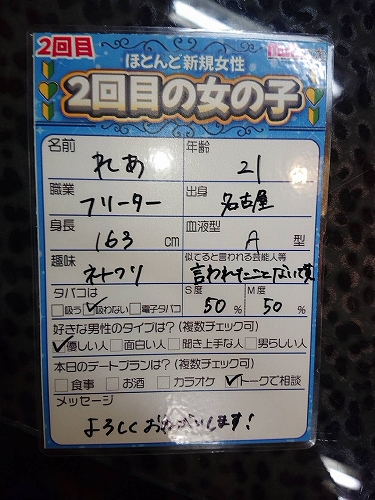 2回目
ほとんど新規女性
2回目の女の子
名前 れあ 年齢 21
職業 フリーター 出身 名古屋
身長 163 cm 血液型 A 型
趣味 ネトフリ 似てると言われる芸能人等 言われたことない笑
タバコは S度 M度
吸う 吸わない 電子タバコ 50 % 50 %
好きな男性のタイプは？(複数チェック可)
優しい人 面白い人 聞き上手な人 男らしい人
本日のデートプランは？(複数チェック可)
食事 お酒 カラオケ トークで相談
メッセージ
よろしくおねがいします!